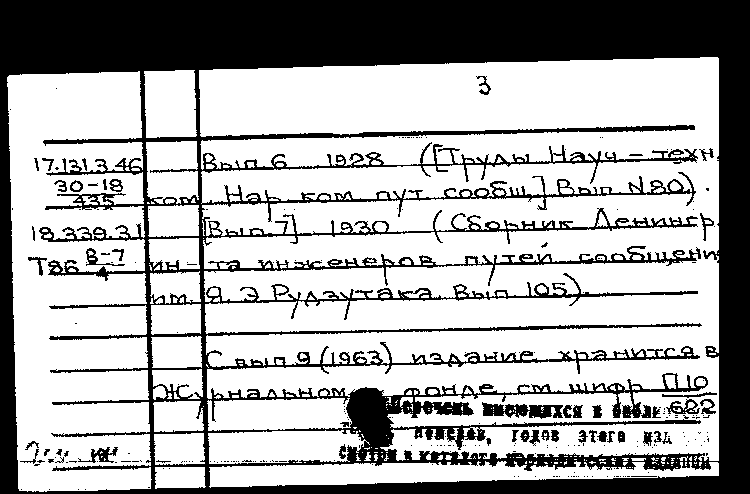 3
17.131.3.46 Вып. 6 1928 ([Труды Науч.-техн.
30-18/435 ком. Нар. ком. пут. сообщ.] Вып. N 80).
18.339.3.1 [Вып. 7] 1930 (Сборник Ленингр.
Т86 В-7/4 ин-та инженеров путей сообщения
им. Я. Э. Рудзутака. Вып. 105).
С вып. 9 (1963) издание хранится в
Журнальном фонде, см. шифр П10/622
Перечень имеющихся в библи
номеров, годов этого изд
смотри в каталоге периодических изданий